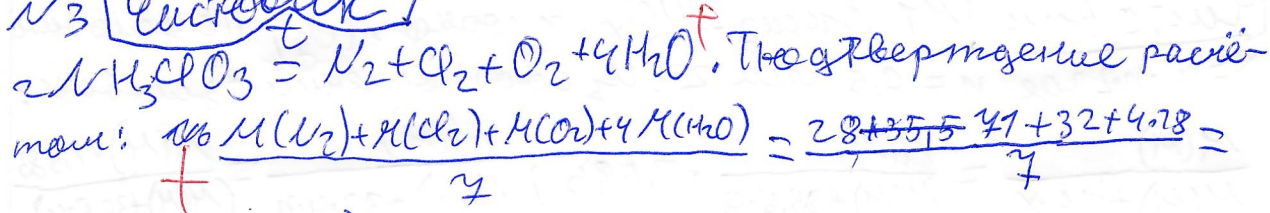 N3 Чистовик.
2NH3ClO3 =t N2+Cl2+O2+4H2O. Подтверждение расчё-
том: M(N2)+M(Cl2)+M(O2)+4M(H2O) / 7 = 28+35,5 71+32+4·18 / 7 =